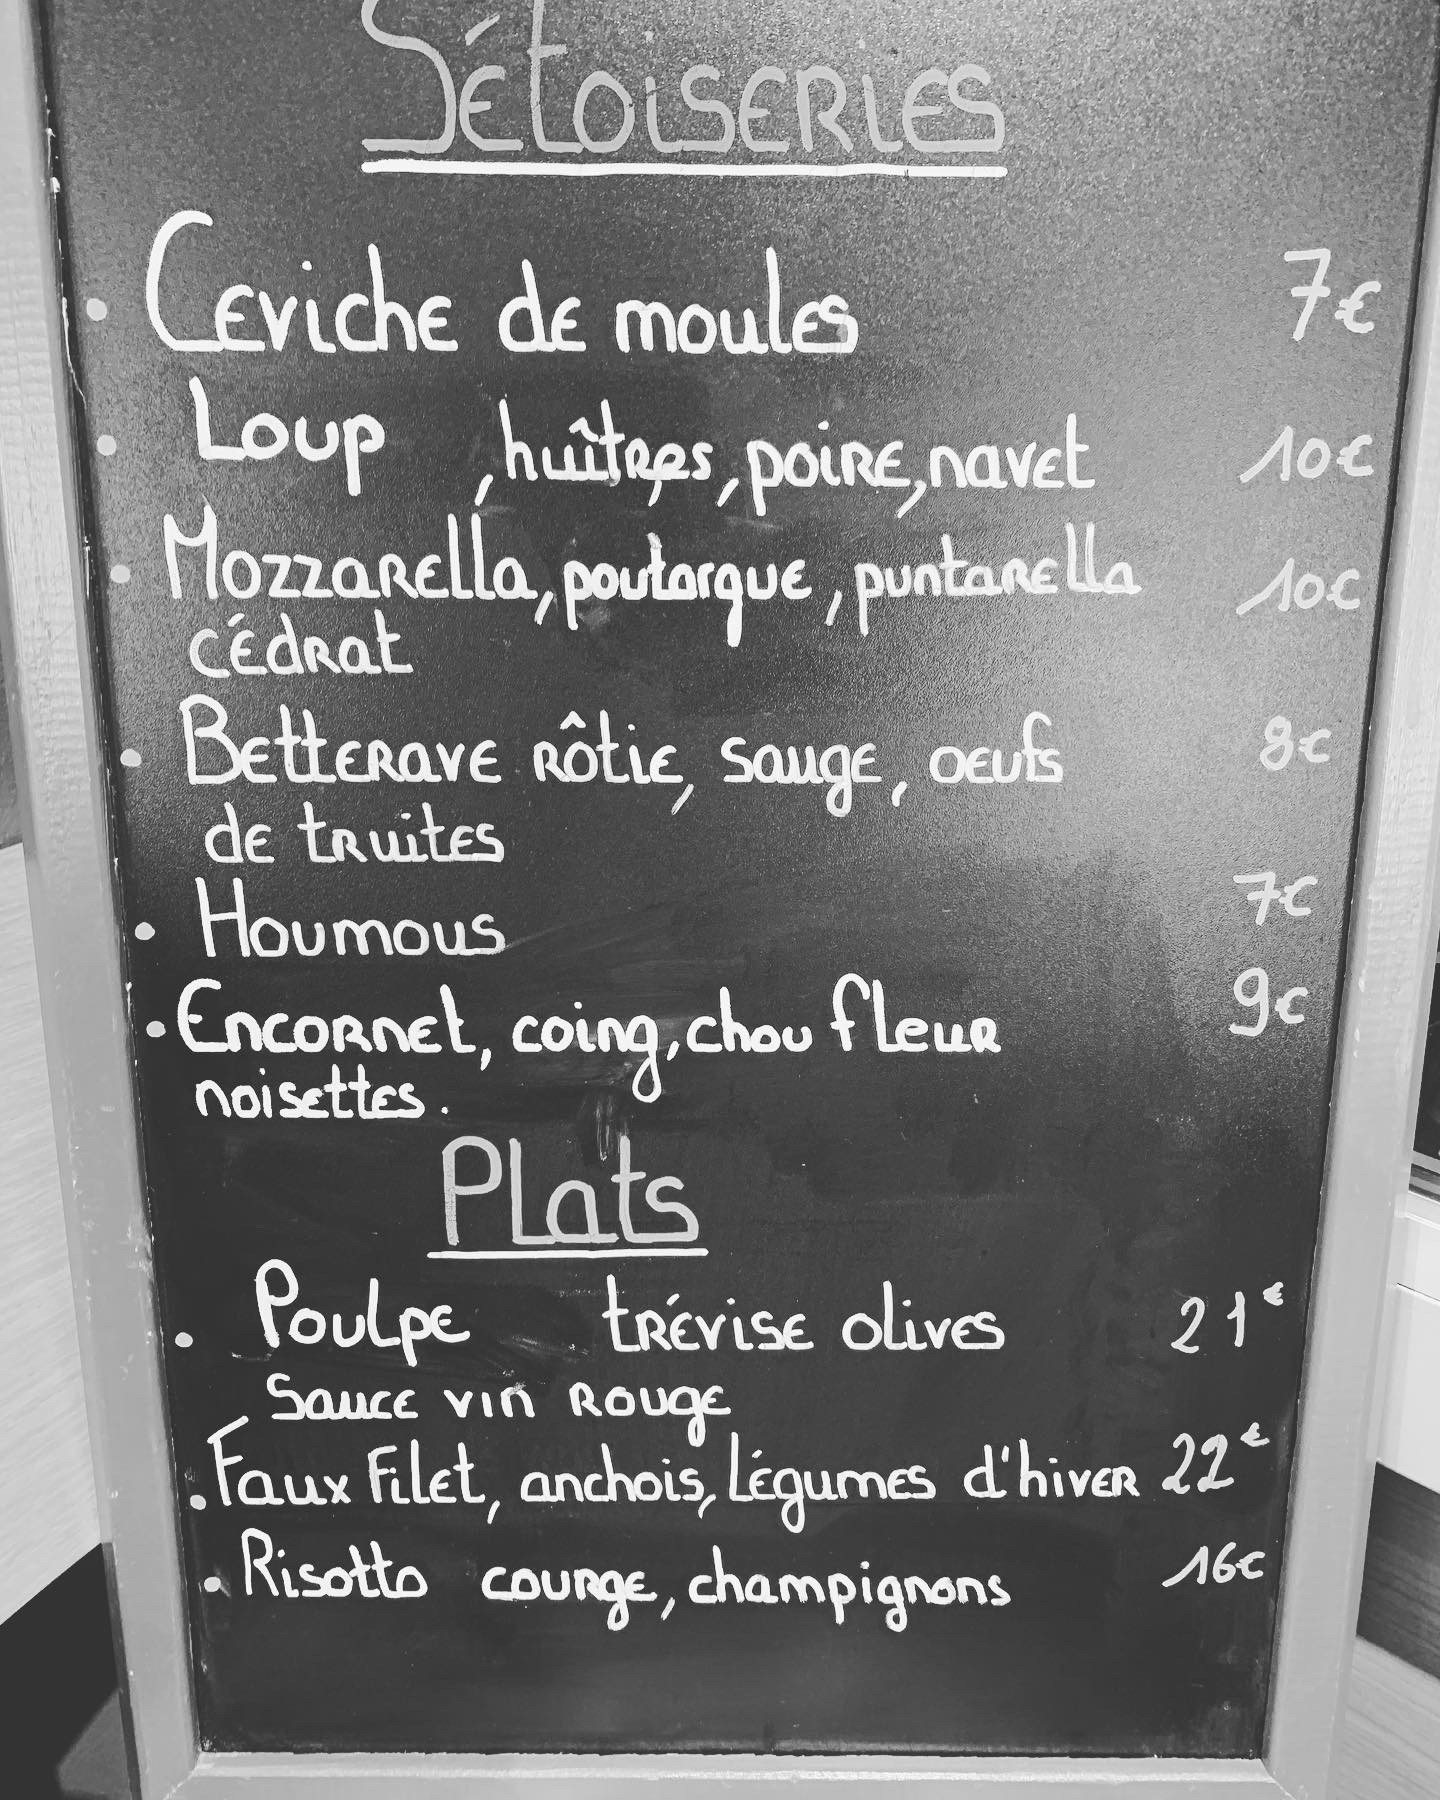 Sétoiseries
• Ceviche de moules 7€
• Loup , huîtres, poire, navet 10€
• Mozzarella, poutargue, puntarella 10€
cédrat
• Betterave rôtie, sauge, oeufs 8€
de truites
• Houmous 7€
• Encornet, coing, chou fleur 9€
noisettes.
Plats
• Poulpe trévise olives 21€
sauce vin rouge
• Faux Filet, anchois, légumes d'hiver 22€
• Risotto courge, champignons 16€